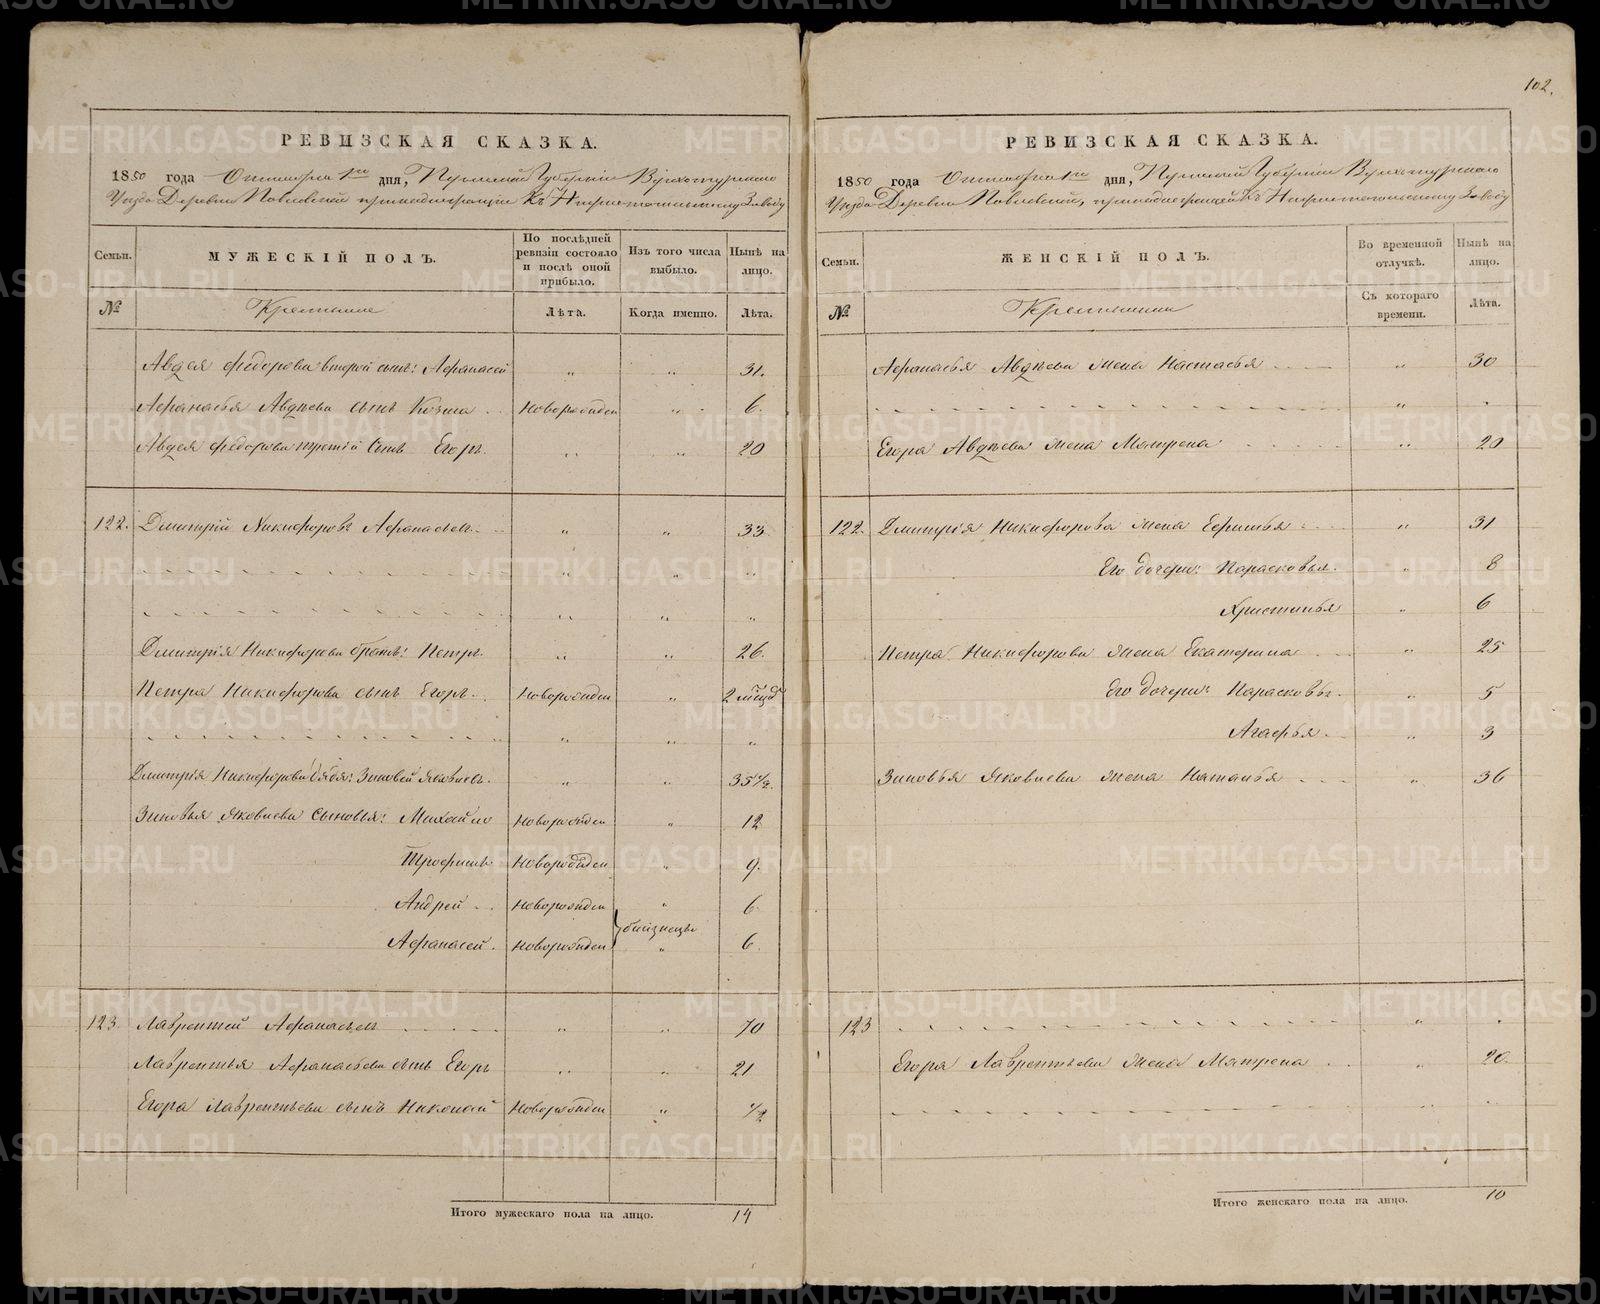 102.
РЕВИЗСКАЯ СКАЗКА.
1850 года Октября 1го дня, Пермской Губерніи Верхотурскаго
Уѣзда Деревни Павловской принадлежащей Къ Нижнетагильскому Заводу
Семьи. МУЖЕСКІЙ ПОЛЪ. По послѣдней ревизіи состояло и послѣ оной прибыло. Изъ того числа выбыло. Нынѣ на лицо.
№ Крестьяне Лѣта. Когда именно. Лѣта.
Авдея Федорова второй сынъ: Афанасей " " 31.
Афанасья Авдѣева сынъ Козма Новорожден " 6.
Авдея Федорова третій Сынъ Егоръ. " " 20
122. Дмитрій Никифоровъ Афанасьевъ " " 33.
" " "
" " "
Дмитрія Никифорова братъ: Петръ " " 26.
Петра Никифорова сынъ Егоръ. Новорожден " 2 мѣсяц
" " "
Дмитрія Никифорова дядя: Зиновей Яковлевъ " " 35 1/2.
Зиновья Яковлева Сыновья: Михайло Новорожден " 12
Трофимъ Новорожден " 9.
Андрей Новорожден " 6
близнецы
Афанасей. Новорожден " 6.
123. Лаврентей Афанасьевъ " " 70
Лаврентья Афанасьева сынъ Егоръ " " 21
Егора Лаврентьева сынъ Николай Новорожден " 1/2
Итого мужескаго пола на лицо. 14
РЕВИЗСКАЯ СКАЗКА.
1850 года Октября 1го дня, Пермской Губерніи Верхотурскаго
Уѣзда Деревни Павловской, принадлежащей Къ Нижнетагильскому Заводу
Семьи. ЖЕНСКІЙ ПОЛЪ. Во временной отлучкѣ. Нынѣ на лицо.
№ Крестьянки Съ котораго времени. Лѣта.
Афанасья Авдѣева жена Настасья " 30
"
Егора Авдѣева жена Матрена " 20
122. Дмитрія Никифорова жена Ефимья " 31
Его дочери: Парасковья. " 8
Христинья " 6
Петра Никифорова жена Екатерина " 25
Его дочери: Парасковья. " 5
Агафья. " 3
Зиновья Яковлева жена Наталья " 36
123 "
Егора Лаврентьева жена Матрена " 20.
" "
Итого женскаго пола на лицо. 10
METRIKI.GASO-URAL.RU